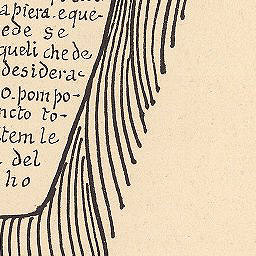 apiera.eque-
ede se
queli che de
desidera-
o. pompo-
ncto to-
tem le
del
ho